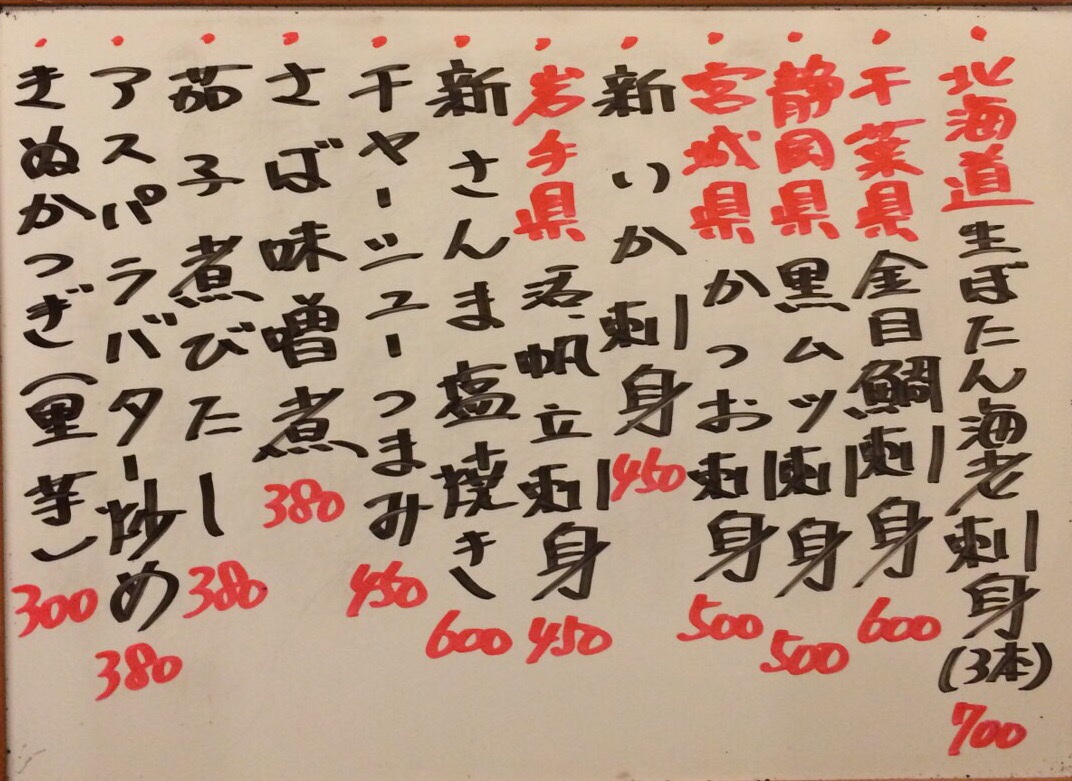 ・北海道生ぼたん海老刺身(3本)700
・千葉県金目鯛刺身600
・静岡県黒ムツ刺身500
・宮城県かつお刺身500
・新いか刺身450
・岩手県活帆立刺身450
・新さんま塩焼き600
・チャーシューつまみ450
・さば味噌煮380
・茄子煮びたし380
・アスパラバター炒め380
・きぬかつぎ(里芋)300